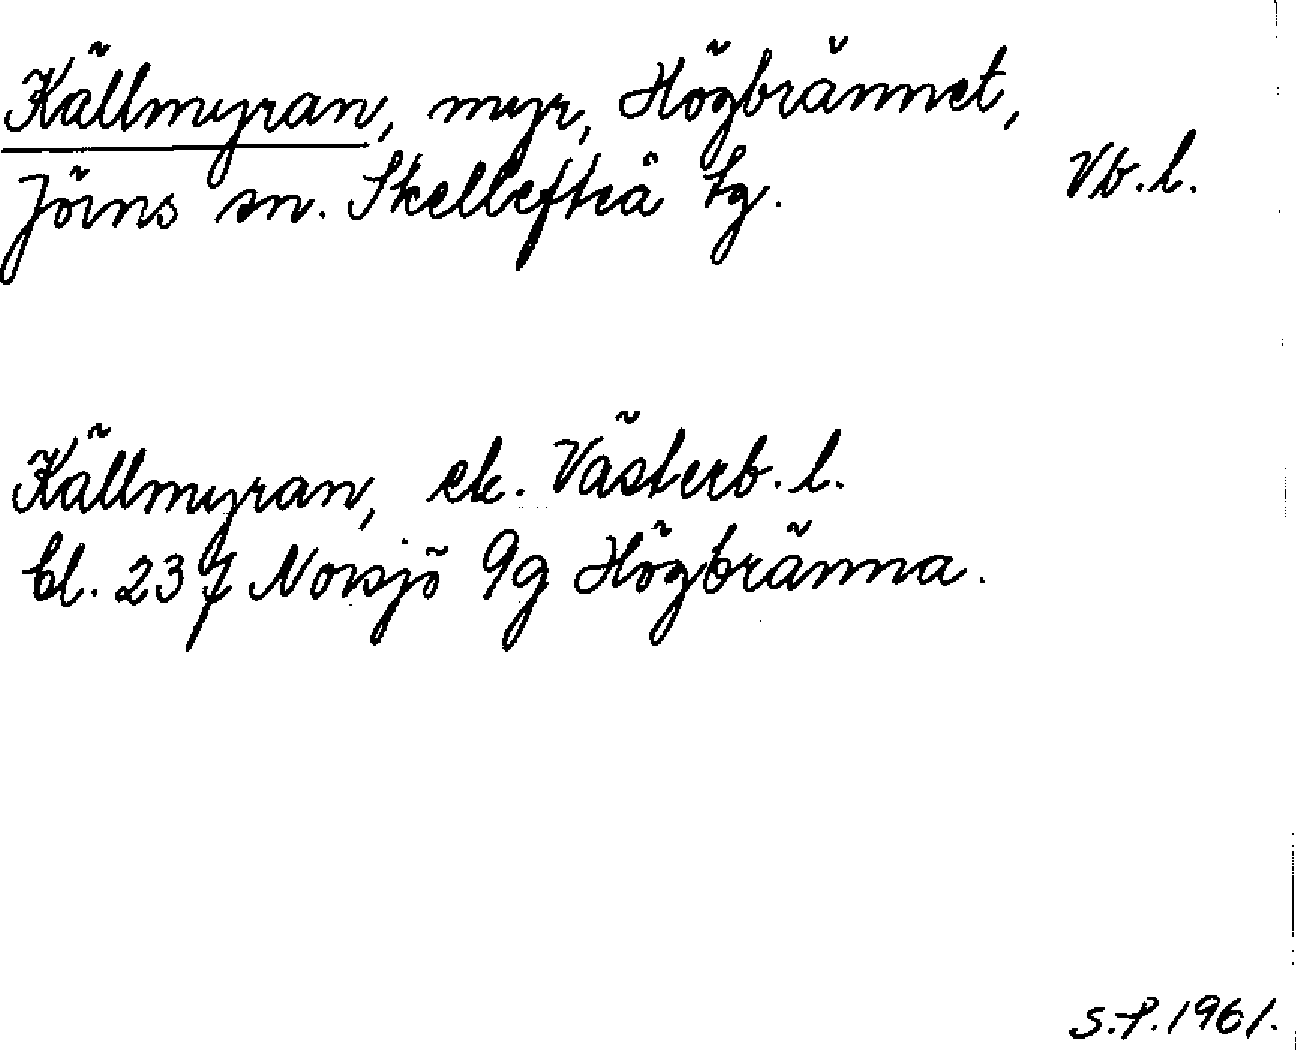 Källmyran, myr, Högbrännet,
Jörns sn. Skellefteå tg. Vb. l.
Källmyran, ek. Västerb. l.
bl. 237 Norsjö 9g Högbränna.
S.P. 1961.